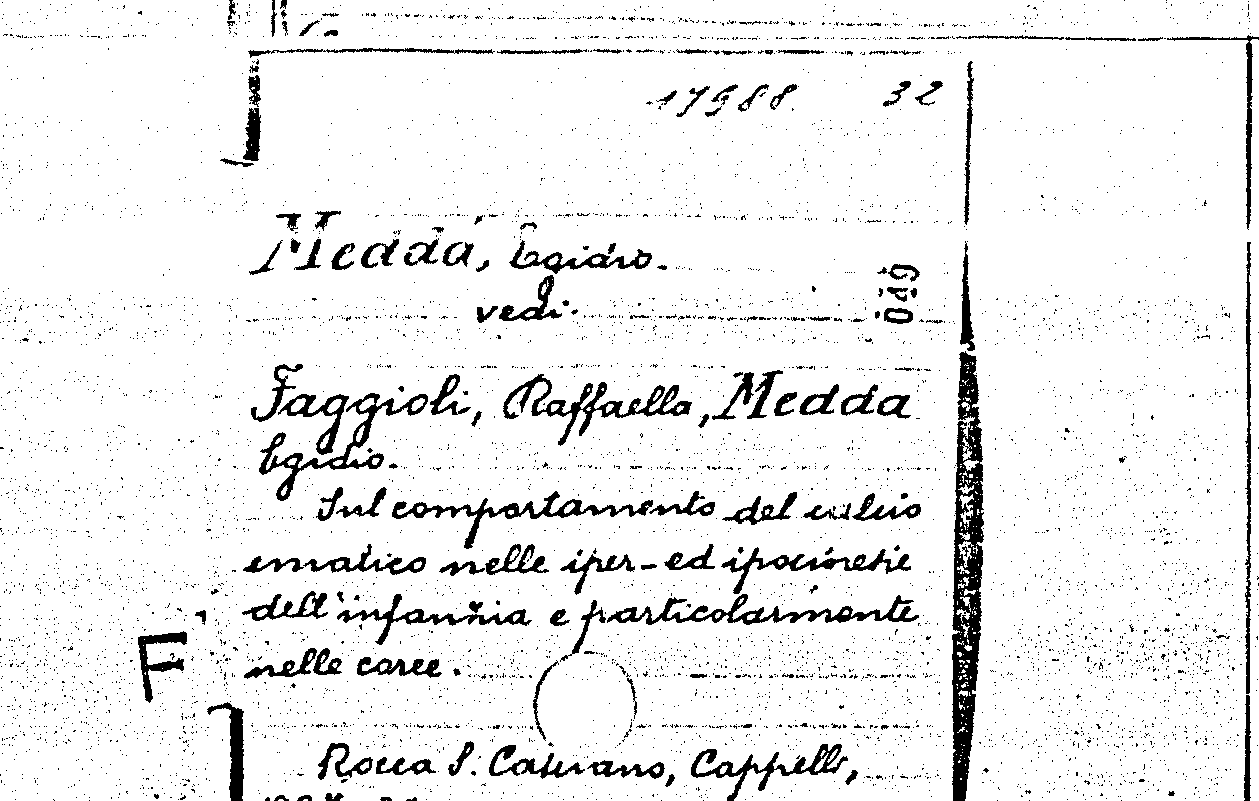 17988 32
Medda, Egidio.
049
vedi.
Faggioli, Raffaella, Medda
Egidio.
Sul comportamento del calcio
ematico nelle iper- ed ipocinesie
dell'infanzia e particolarmente
nelle coree.
F
Rocca S. Casciano, Cappelli,